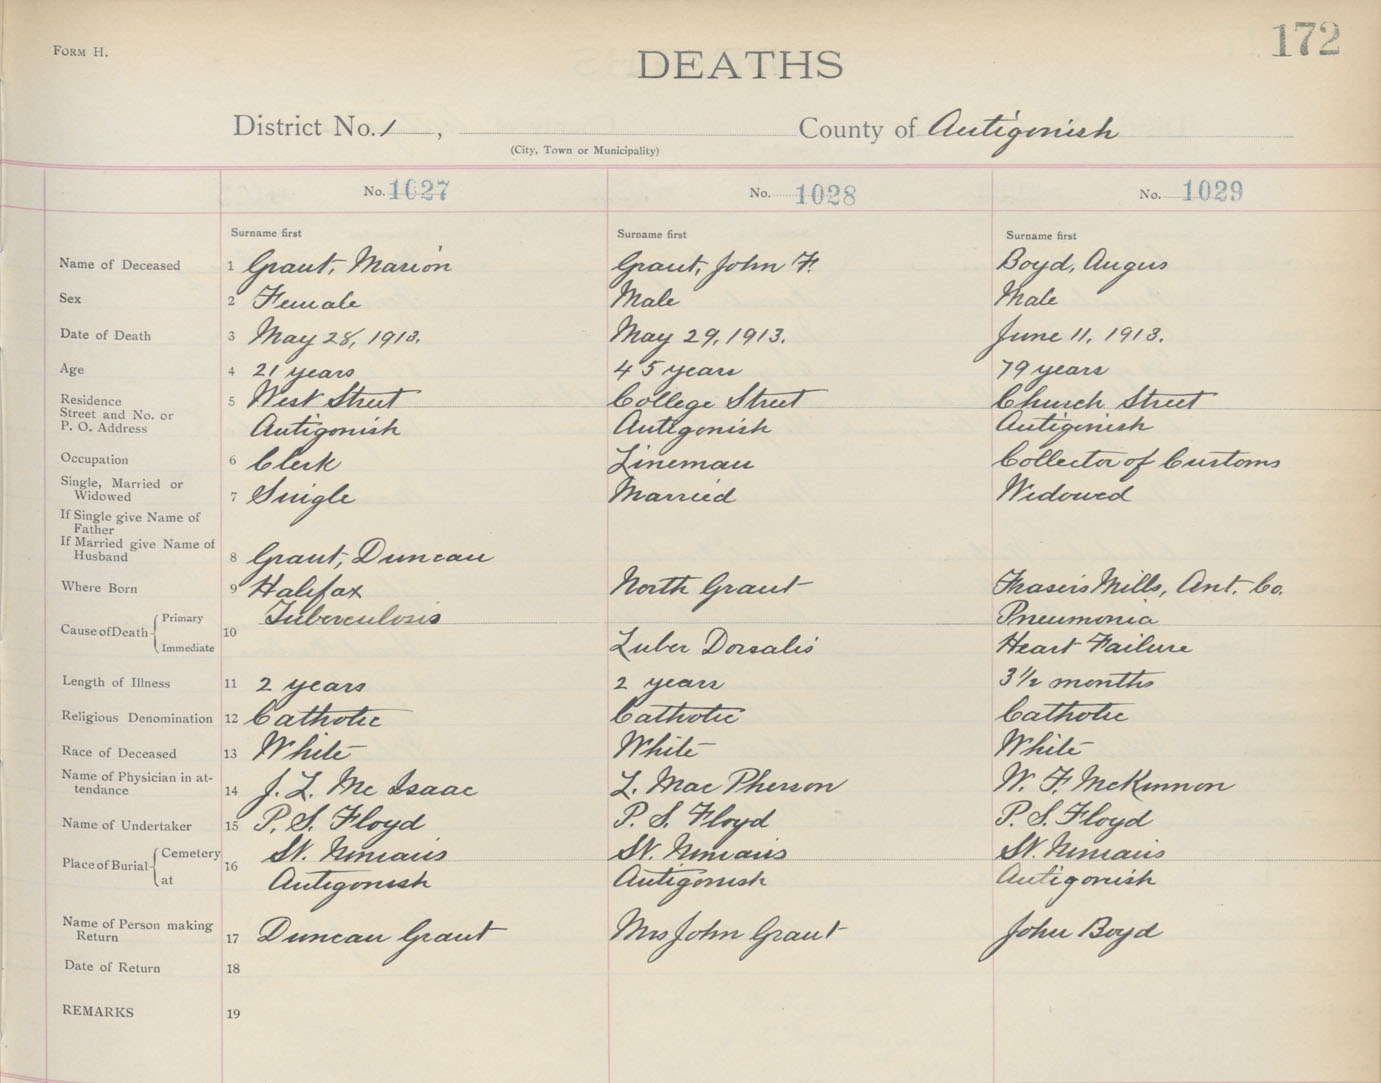 172
FORM H.
DEATHS
District No. 1, County of Antigonish
(City, Town or Municipality)
No. 1027 No. 1028 No. 1029
Surname first Surname first Surname first
Name of Deceased 1 Grant, Marion Grant, John F. Boyd, Angus
Sex 2 Female Male Male
Date of Death 3 May 28, 1913. May 29, 1913. June 11, 1913.
Age 4 21 years 45 years 79 years
Residence 5 West Street College Street Church Street
Street and No. or
P. O. Address Antigonish Antigonish Antigonish
Occupation 6 Clerk Lineman Collector of Customs
Single, Married or
Widowed 7 Single Married Widowed
If Single give Name of
Father
If Married give Name of
Husband 8 Grant, Duncan
Where Born 9 Halifax North Grant Frasers Mills, Ant. Co.
Cause of Death Primary 10 Tuberculosis Pneumonia
Immediate Luber Dorsalis Heart Failure
Length of Illness 11 2 years 2 years 3½ months
Religious Denomination 12 Catholic Catholic Catholic
Race of Deceased 13 White White White
Name of Physician in at-
tendance 14 J. L. Mc Isaac L. Mac Pherson W. F. McKinnon
Name of Undertaker 15 P. S. Floyd P. S. Floyd P. S. Floyd
Place of Burial Cemetery 16 St. Ninians St. Ninians St. Ninians
at Antigonish Antigonish Antigonish
Name of Person making
Return 17 Duncan Grant Mrs John Grant John Boyd
Date of Return 18
REMARKS 19